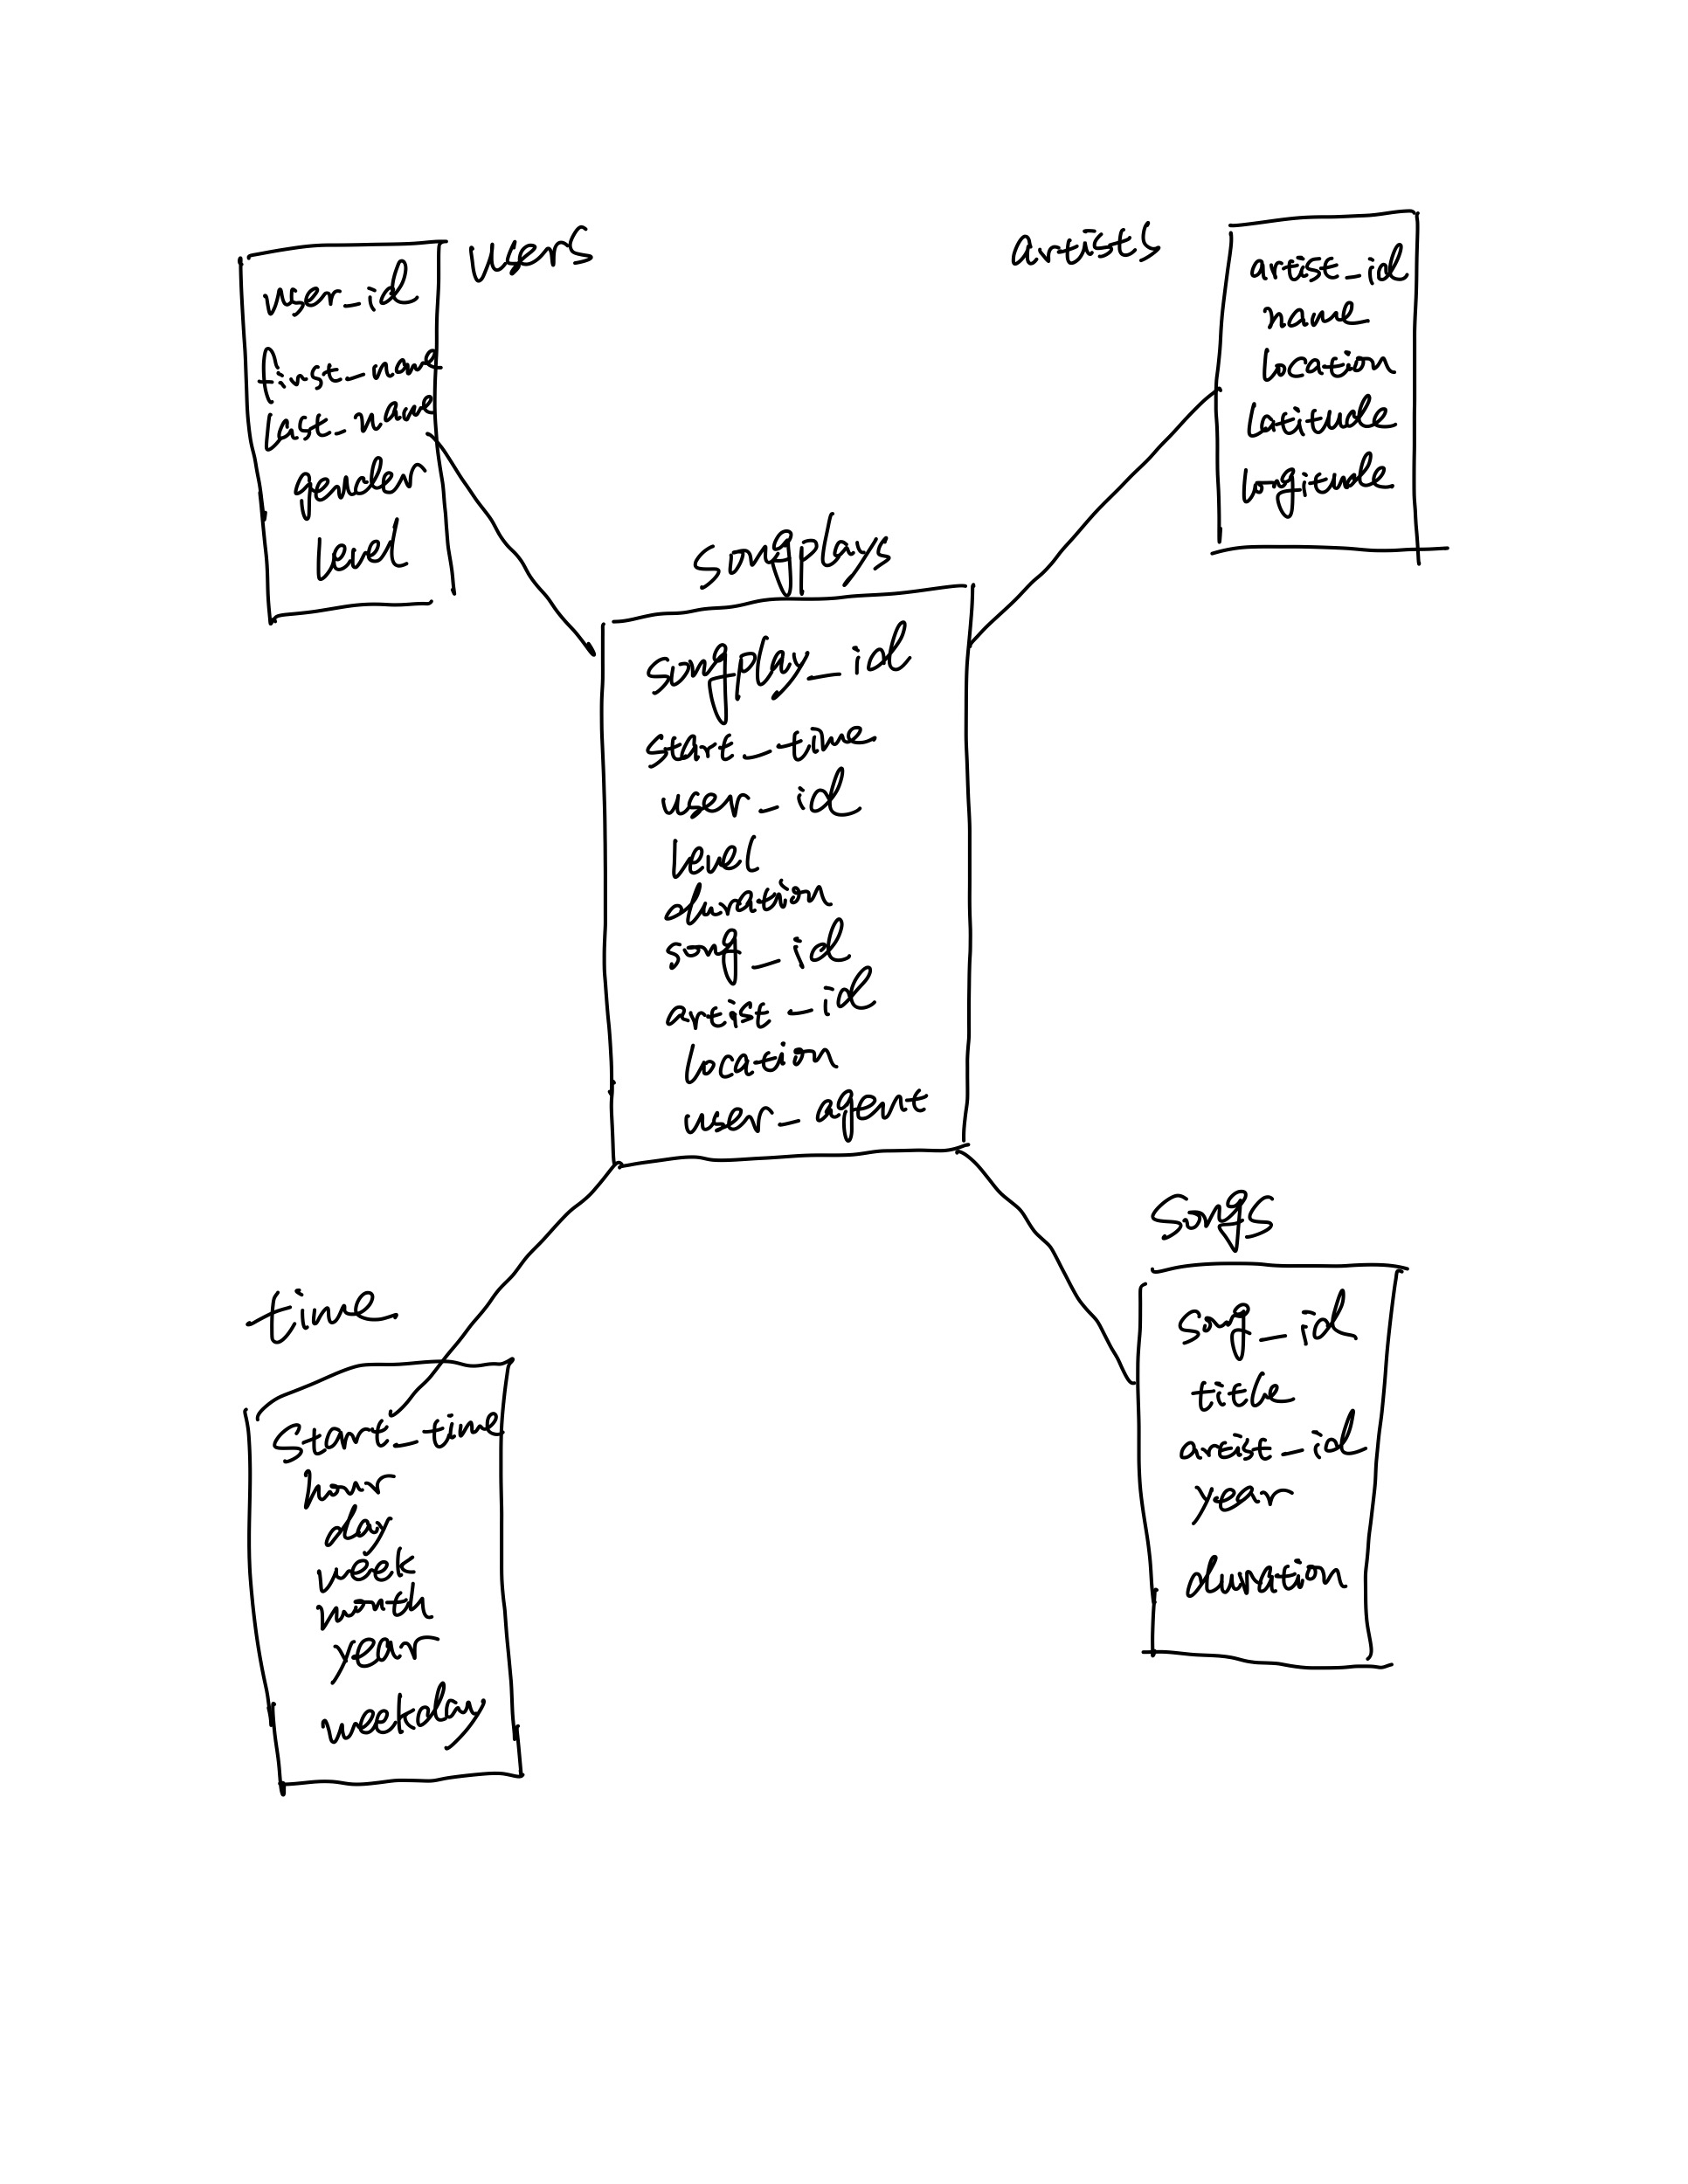 users
user_id
first_name
last_name
gender
level
artists
artist_id
name
location
latitude
longitude
songplays
songplay_id
start_time
user_id
level
duration
song_id
artist_id
location
user_agent
time
start_time
hour
day
week
month
year
weekday
songs
song_id
title
artist_id
year
duration